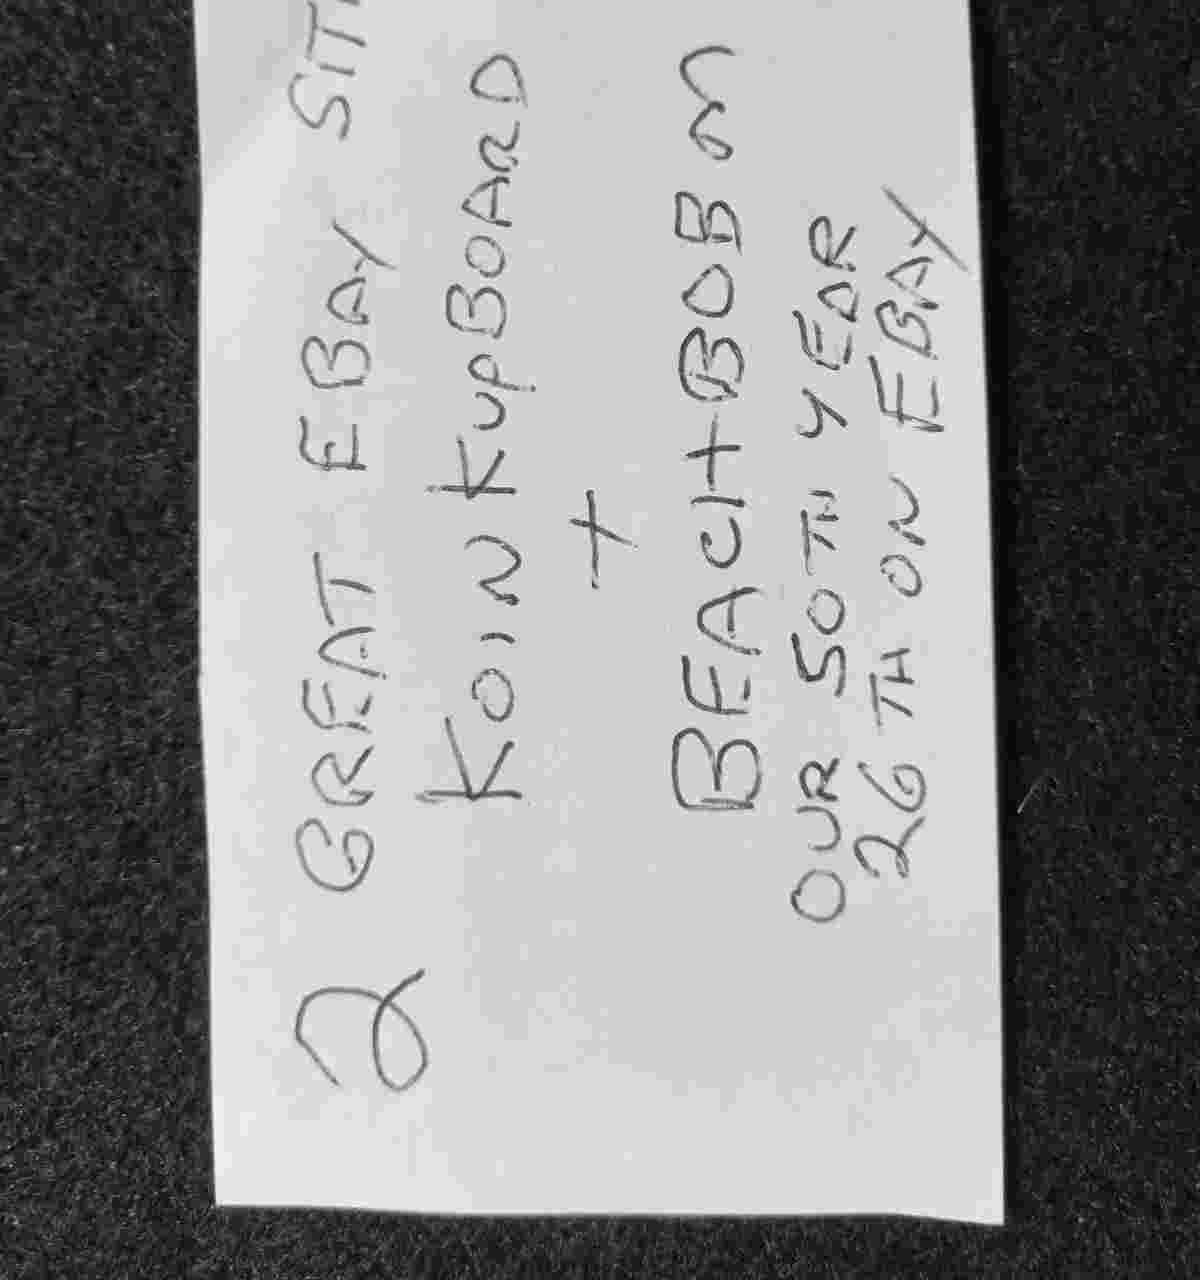 2 GREAT EBAY SIT
KOIN KUPBOARD
+
BEACHBOB
OUR 50TH YEAR
26TH ON EBAY